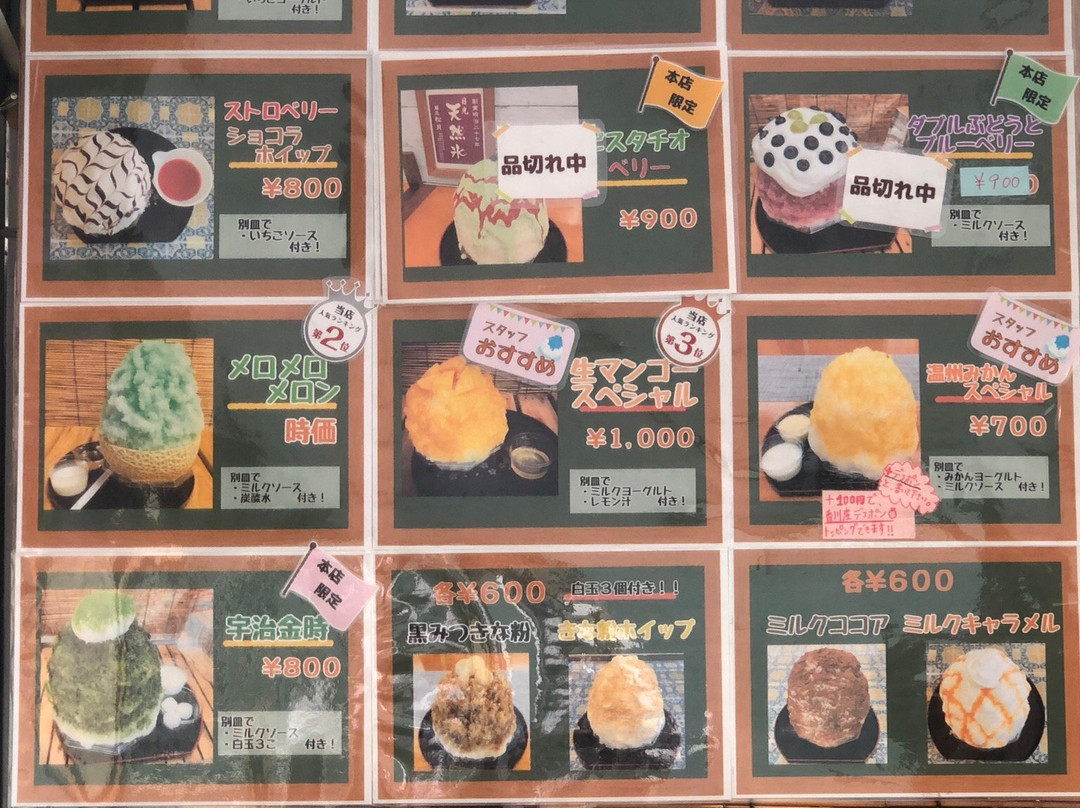 いちごヨーグルト
付き！
ストロベリー
ショコラ
ホイップ
¥800
別皿で
・いちごソース
付き！
本店
限定
天然氷
品切れ中
ピスタチオ
ベリー
¥900
本店
限定
ダブルぶどうと
ブルーベリー
品切れ中
¥900
別皿で
・ミルクソース
付き！
当店
人気ランキング
第2位
メロメロ
メロン
時価
別皿で
・ミルクソース
・炭酸水 付き！
スタッフ
おすすめ
当店
人気ランキング
第3位
生マンゴー
スペシャル
¥1,000
別皿で
・ミルクヨーグルト
・レモン汁 付き！
スタッフ
おすすめ
温州みかん
スペシャル
¥700
別皿で
・みかんヨーグルト
・ミルクソース 付き！
+100円で
香川産デコポン
トッピングできます!!
本店
限定
宇治金時
¥800
別皿で
・ミルクソース
・白玉3こ 付き！
各¥600 白玉3個付き！！
黒みつきな粉 きな粉ホイップ
各¥600
ミルクココア ミルクキャラメル